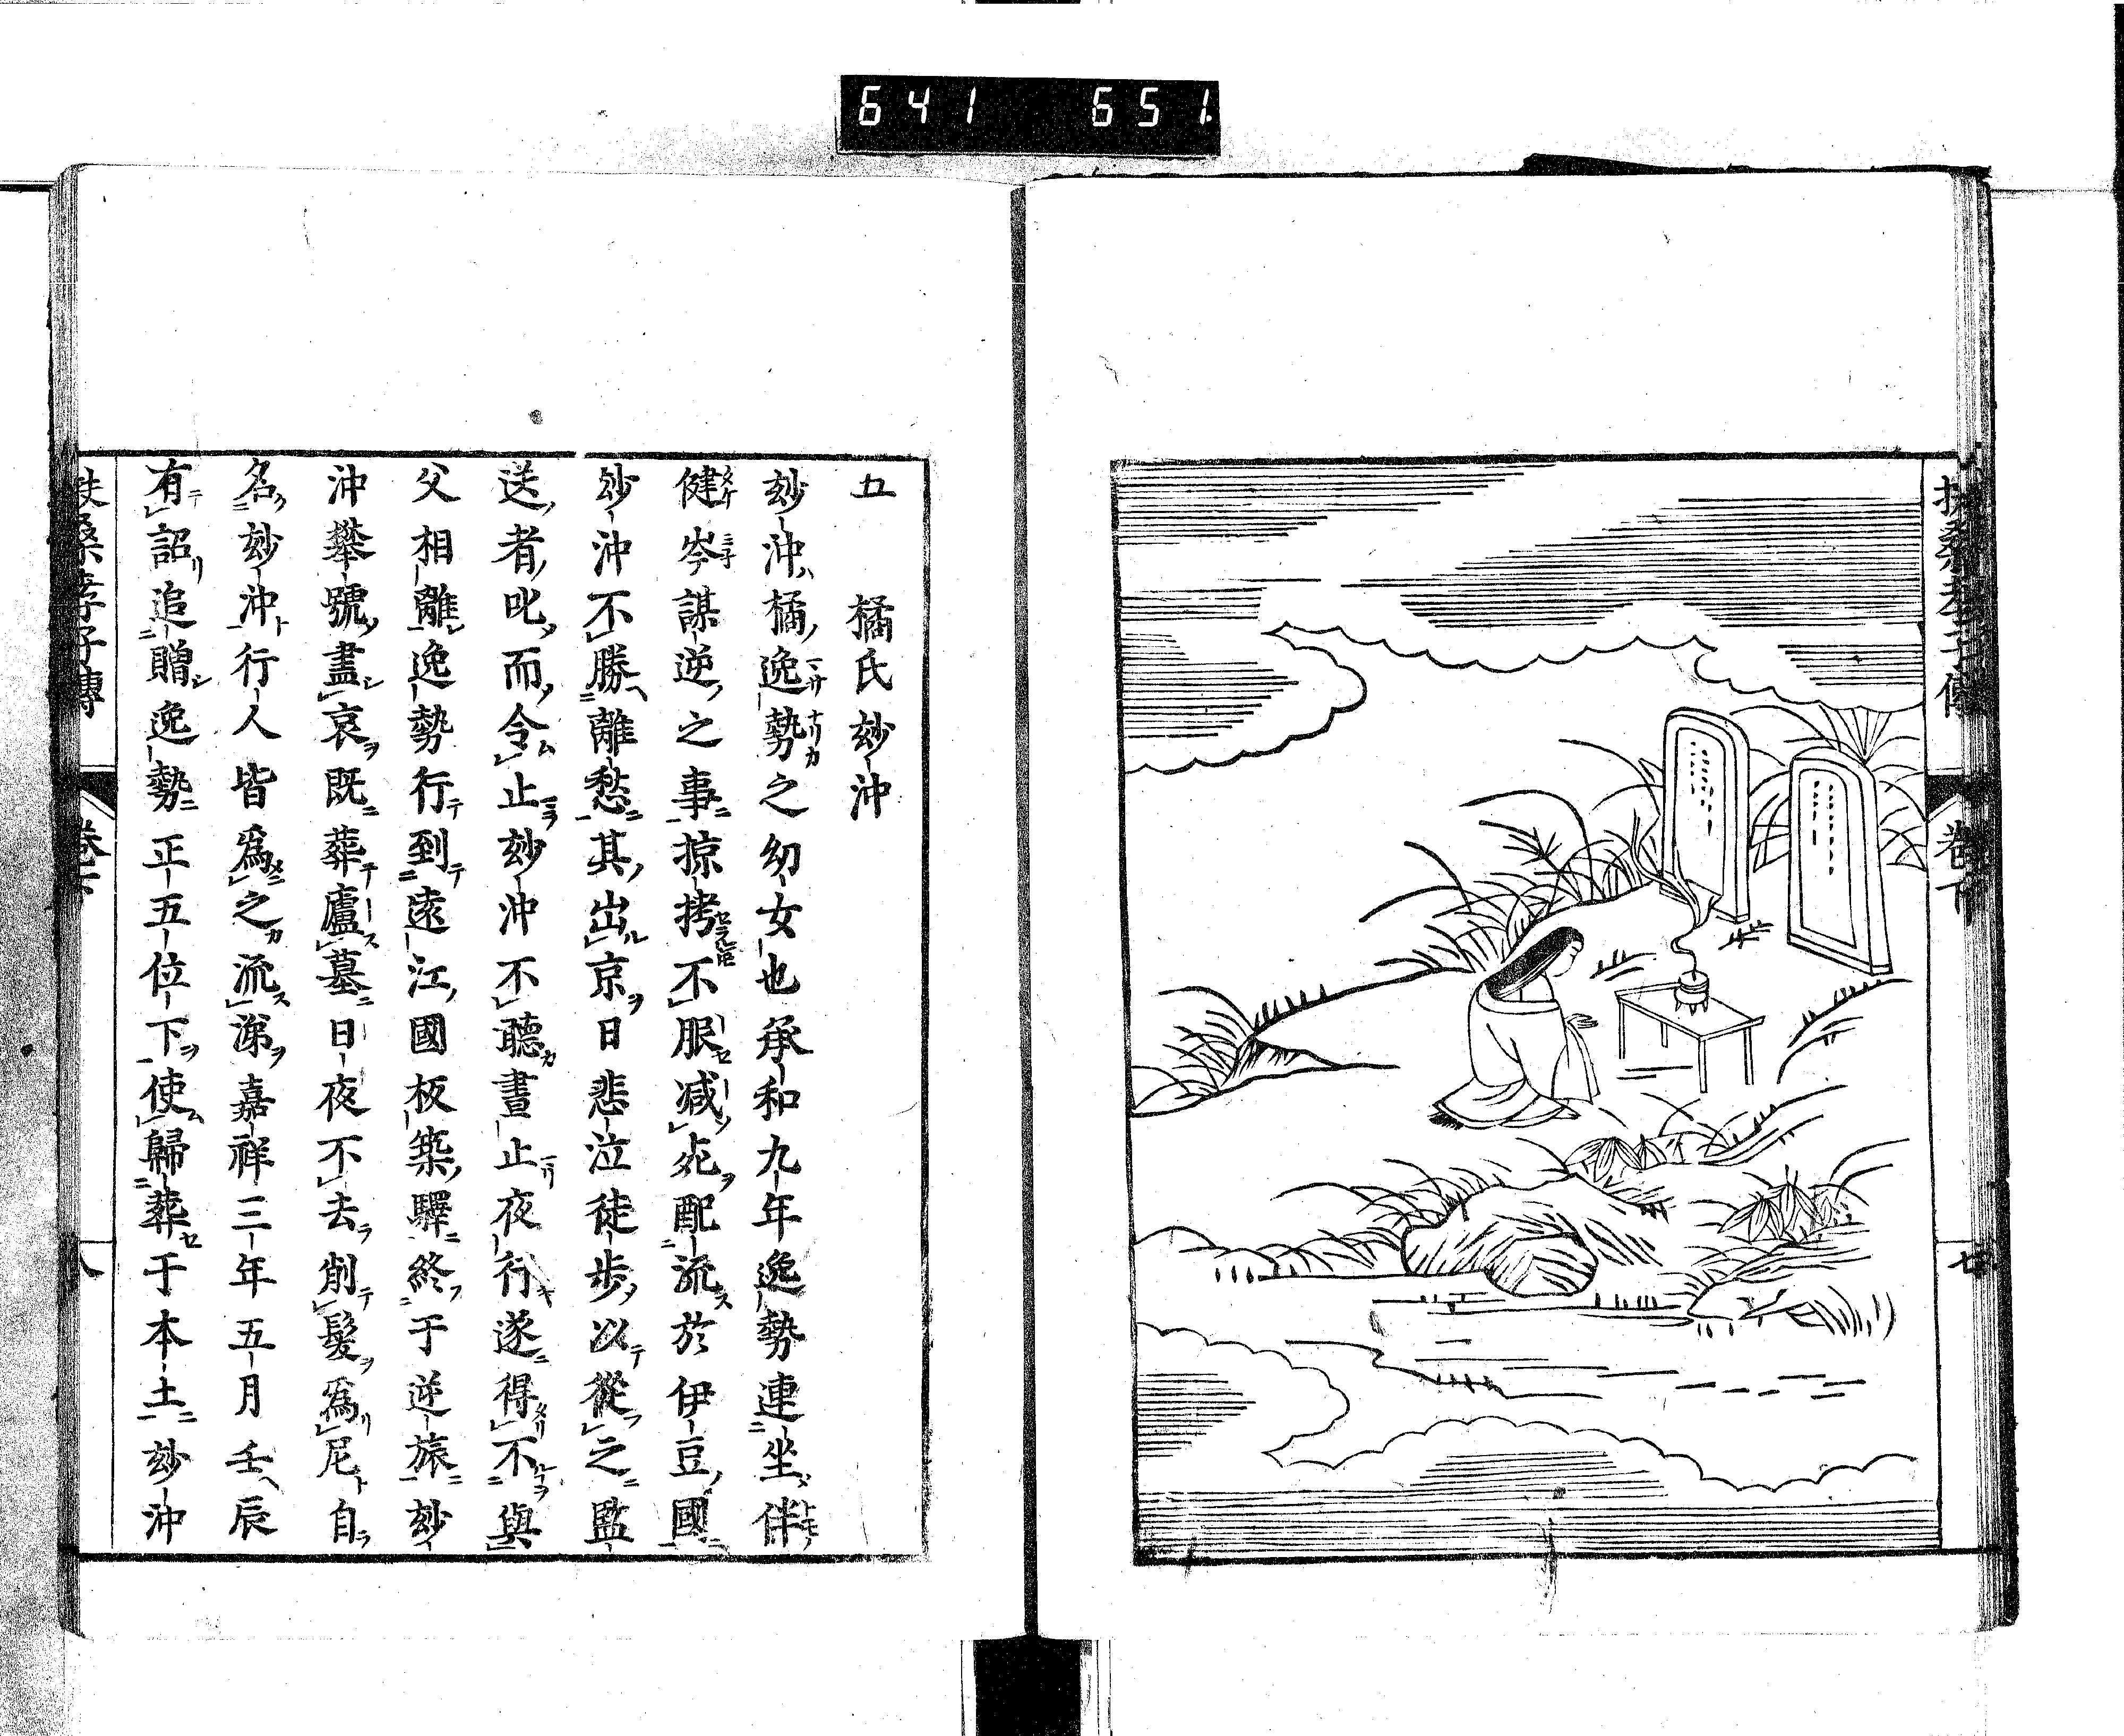 641 651
扶桑孝子傳
卷下
七
五 橘氏玅沖
玅沖橘逸勢之幼女也承和九年逸勢連坐伴
健岑謀逆之事掠拷不服减死配流於伊豆國
玅沖不勝離愁其出京日悲泣徒步以從之監
送者叱而令止玅沖不聽晝止夜行遂得不與
父相離逸勢行到遠江國板築驛終于逆旅玅
沖攀號盡哀既葬廬墓日夜不去削髮爲尼自
名玅沖行人皆爲之流涕嘉祥三年五月壬辰
有詔追贈逸勢正五位下使歸葬于本土玅沖
扶桑孝子傳
卷下
八